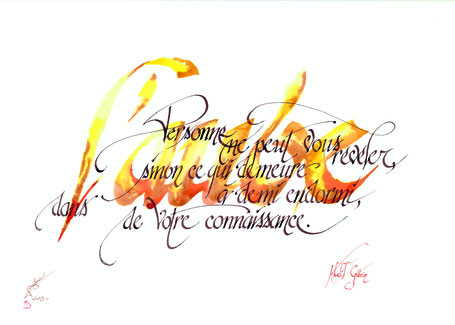 l'aube
Personne
ne peut vous révéler,
sinon ce qui demeure
à demi endormi,
dans de Votre connaissance.
Khalil Gibran